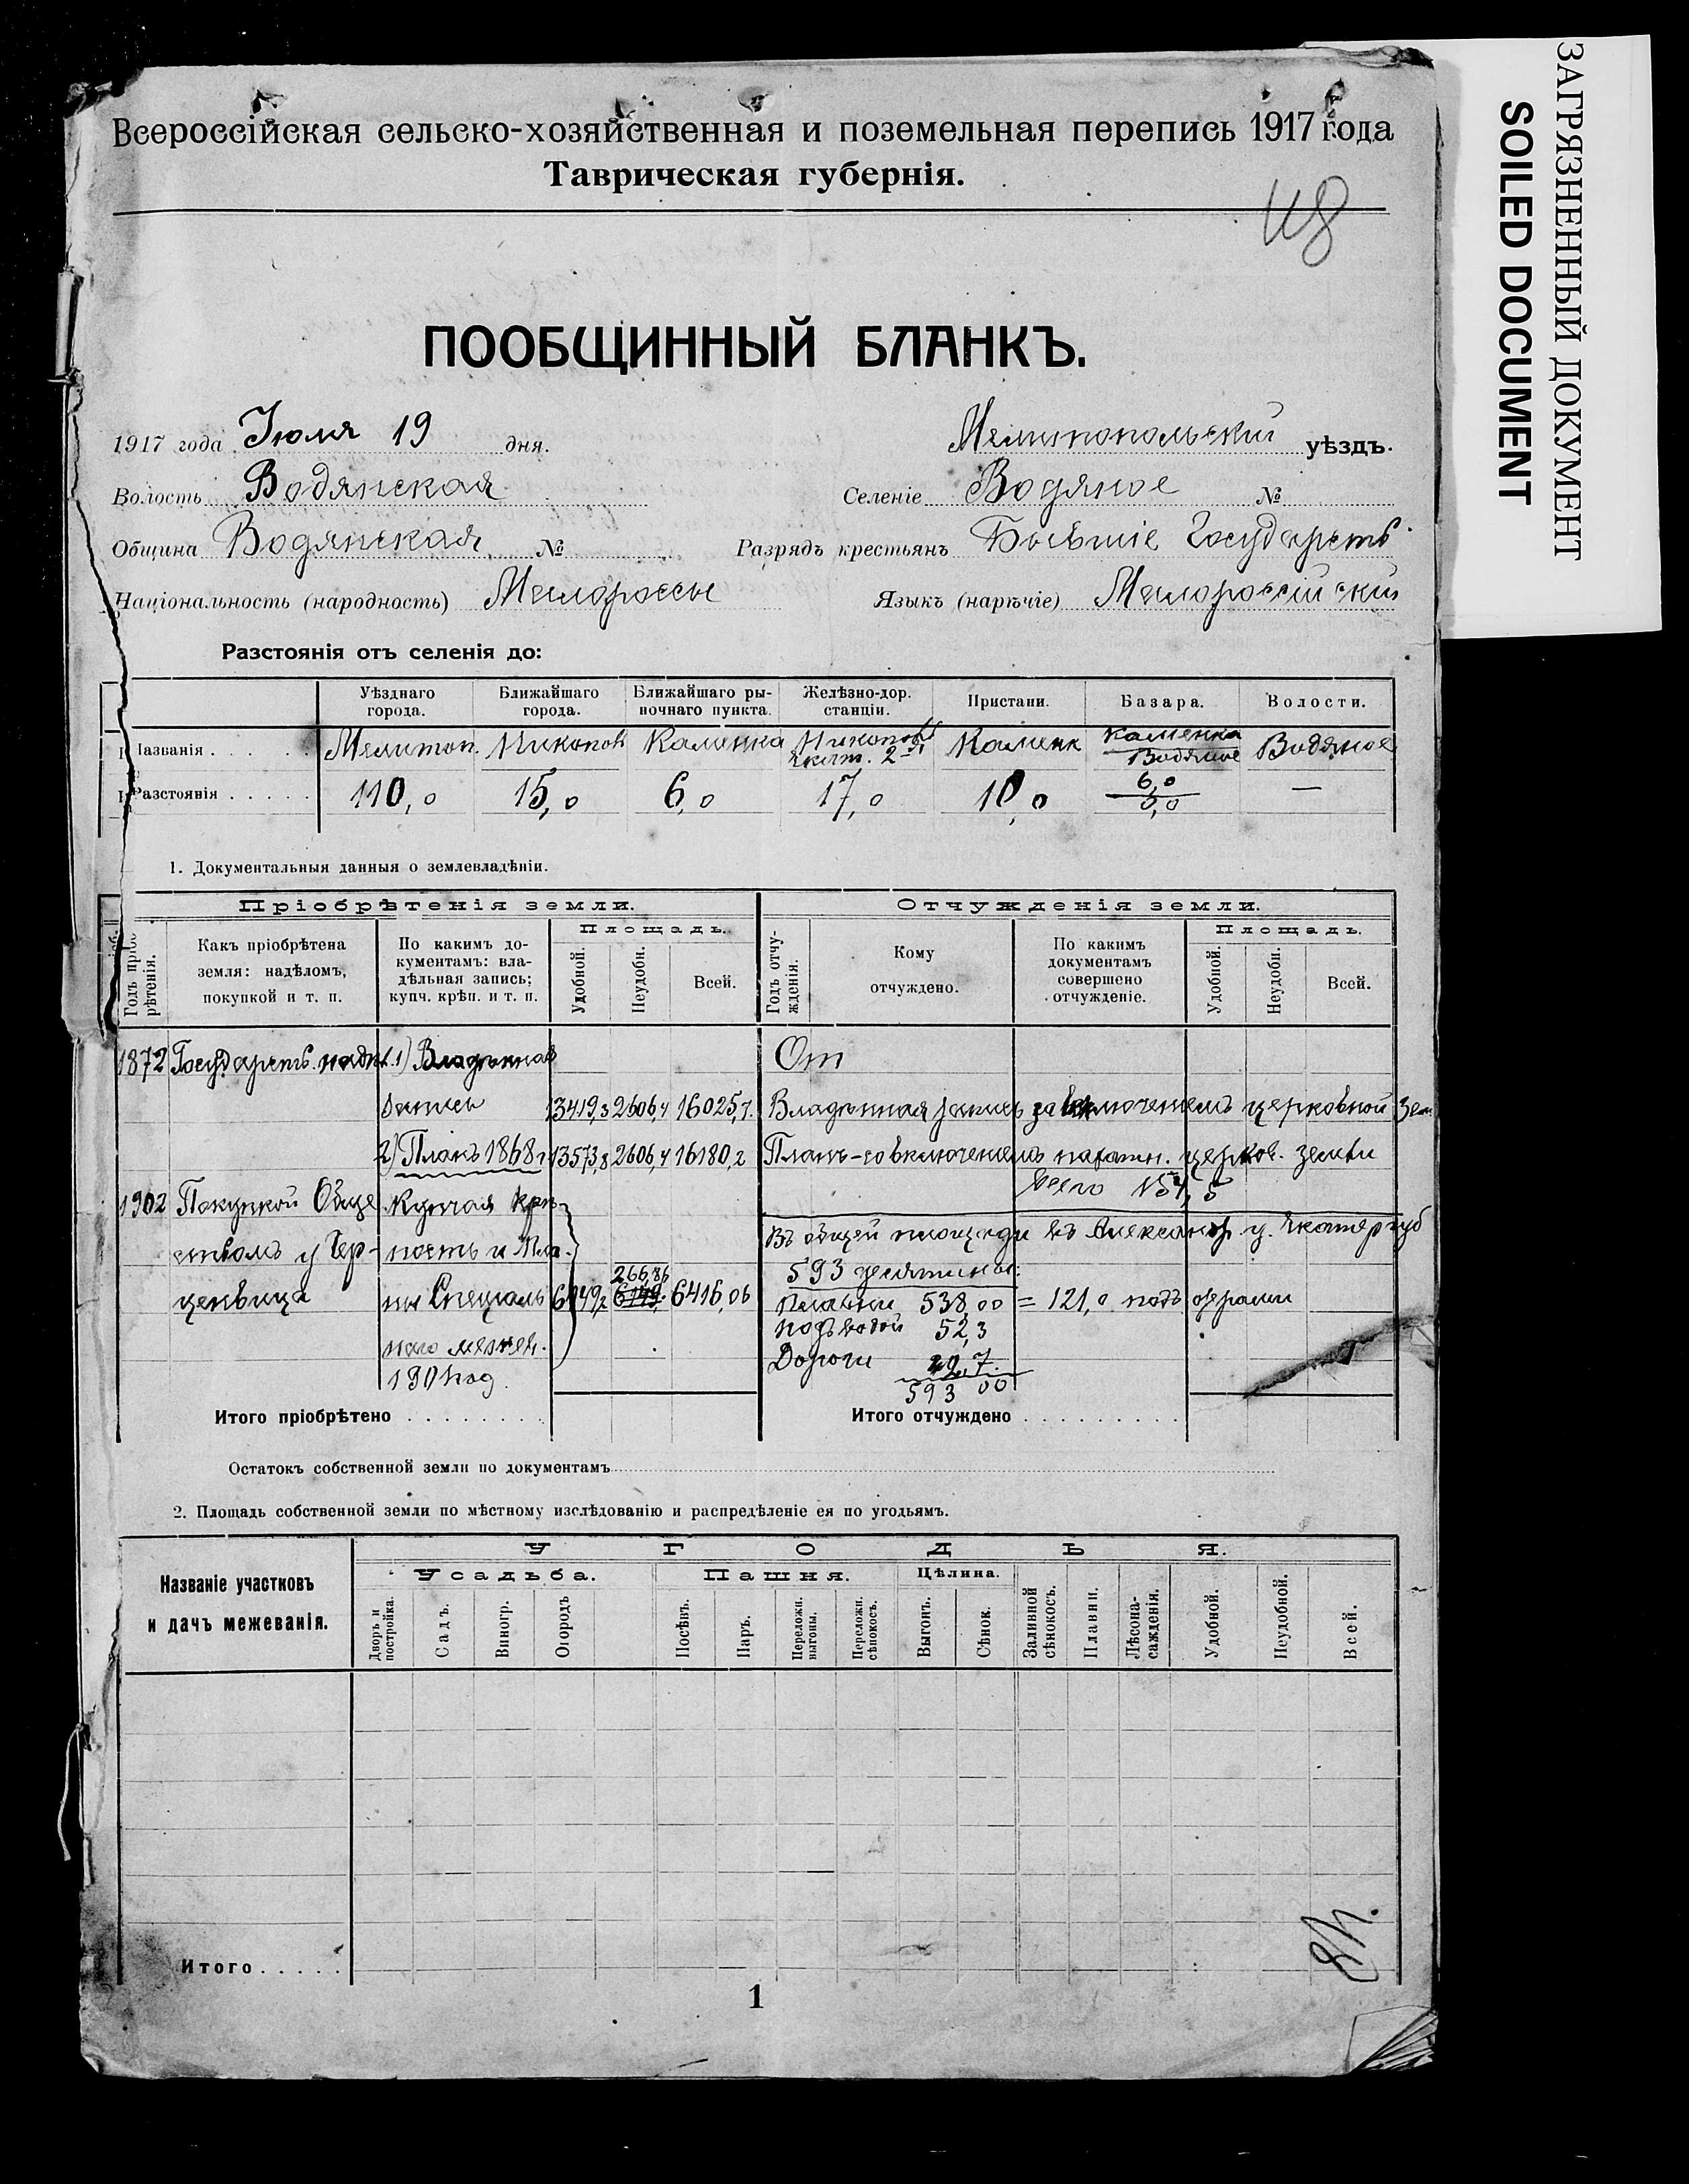 Всероссійская сельско-хозяйственная и поземельная перепись 1917 года
Таврическая губернія.
ЗАГРЯЗНЕННЫЙ ДОКУМЕНТ
SOILED DOCUMENT
ПООБЩИННЫЙ БЛАНКЪ.
1917 года Іюля 19 дня. Мелитопольскій уѣздъ.
Волость Водянская Селеніе Водяное №
Община Водянская № Разрядъ крестьянъ Бывшіе Государств.
Національность (народность) Малороссы Языкъ (нарѣчіе) Малороссійскій
Разстоянія отъ селенія до:
Уѣзднаго города. Ближайшаго города. Ближайшаго рыночнаго пункта. Желѣзно-дор. станціи. Пристани. Базара. Волости.
Названія . . . . Мелитоп. Никополь Каменка Никополь Екат. 2 Каменк Каменка Водяное Водяное
Разстоянія . . . . . 110,0 15,0 6,0 17,0 10,0 6,0 0,0 —
1. Документальныя данныя о землевладѣніи.
Пріобрѣтенія земли. Отчужденія земли.
Годъ пріобрѣтенія. Какъ пріобрѣтена земля: надѣломъ, покупкой и т. п. По какимъ документамъ: владѣльная запись; купч. крѣп. и т. п. Площадь. Удобной. Неудобн. Всей. Годъ отчужденія. Кому отчуждено. По какимъ документамъ совершено отчужденіе. Площадь. Удобной. Неудобн. Всей.
1872 Государств. надѣл. 1) Владѣнная От
запись 13419,3 2606,4 16025,7. Владѣнная запись за включеніемъ церковной зем.
2) Планъ 1868 г 13573,8 2606,4 16180,2 Планъ-со включеніемъ церков. земли
всего 154,5
1902 Покупкой Обще Купчая крѣ-
ствомъ у Чер- пость и Пла- Въ общей площади въ Александр. у. Екатер губ
593 десятины:
266,86
ценвица ны Спеціаль 6149,2 6149. 6416,06 Плавни 538,00 = 121,0 подъ озерами
наго межев. подъ водой 52,3
190 год. Дороги 2,7.
593 00
Итого пріобрѣтено . . . . . . . . Итого отчуждено . . . . . . . . .
Остатокъ собственной земли по документамъ
2. Площадь собственной земли по мѣстному изслѣдованію и распредѣленіе ея по угодьямъ.
Названіе участковъ и дачъ межеванія. УГОДЬЯ.
Усадьба. Пашня. Цѣлина.
Дворъ и постройка. Садъ. Виногр. Огородъ Посѣвъ. Паръ. Переложн. выгоны. Переложн. сѣнокосъ. Выгонъ. Сѣнок. Заливной сѣнокосъ. Плавни. Лѣсонасажденія. Удобной. Неудобной. Всей.
Итого . . . . .
1